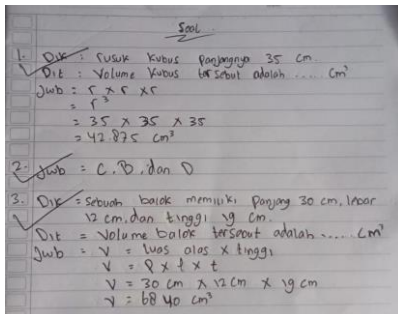 Soal
1. Dik : rusuk kubus panjangnya 35 cm.
Dit : Volume kubus tersebut adalah ..... cm³
Jwb : r x r x r
= r³
= 35 x 35 x 35
= 42.875 cm³
2. Jwb = C, B, dan D
3. Dik = Sebuah balok memiliki panjang 30 cm, lebar
12 cm, dan tinggi 19 cm.
Dit = Volume balok tersebut adalah ..... cm³
Jwb = V = luas alas x tinggi
V = P x l x t
V = 30 cm x 12 cm x 19 cm
V = 6840 cm³